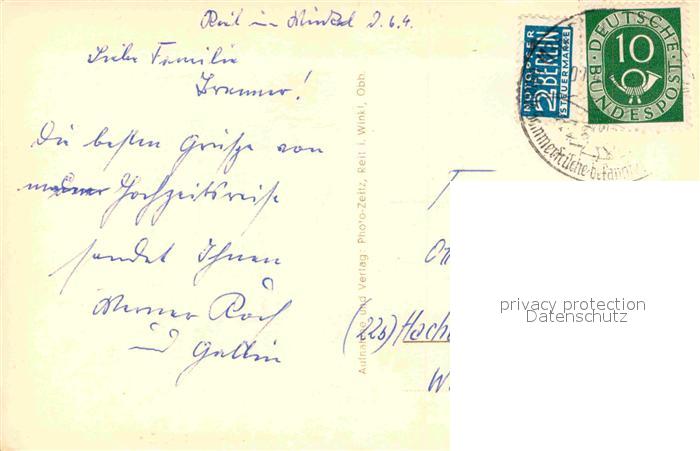 Reit im Winkel d. 6.4.
Liebe Familie
Brenner!
Die besten Grüße von
Hochzeitsreise
sendet Ihnen
Werner
und Gattin
Aufnahme und Verlag: Photo-Zeitz, Reit i. Winkl, Obb.
NOTOPFER
2 BERLIN
STEUERMARKE
DEUTSCHE
10
BUNDESPOST
(22b) Hache
W
privacy protection
Datenschutz